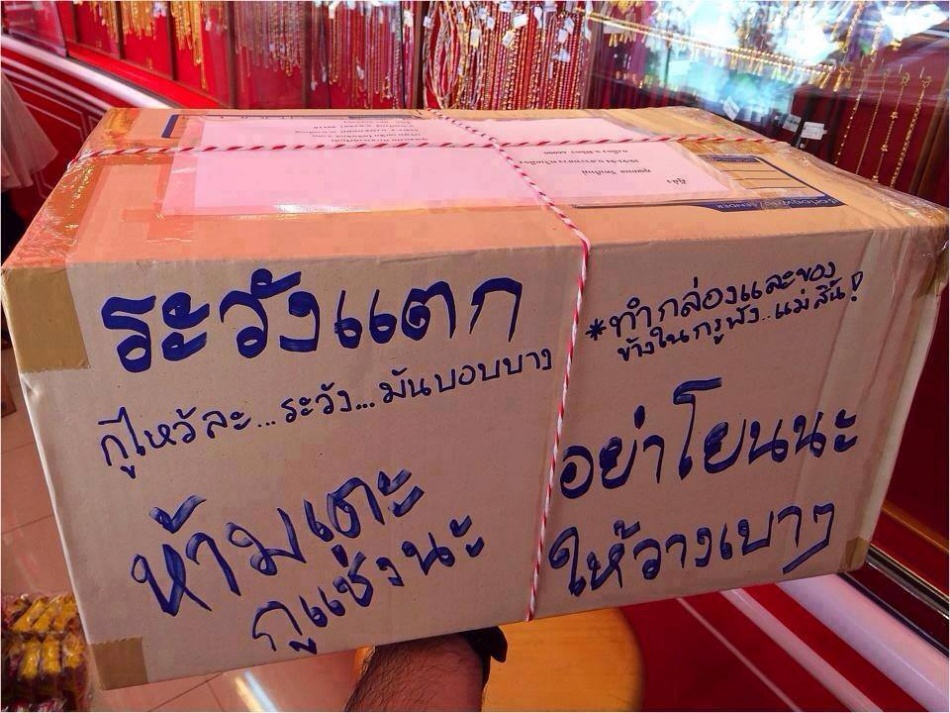 ผู้ส่ง
ระวังแตก
กูไหว้ละ...ระวัง...มันบอบบาง
ห้ามเตะ
กูแช่งนะ
*ทำกล่องและของ
ข้างในกูพัง..แม่สิ้น!
อย่าโยนนะ
ให้วางเบาๆ